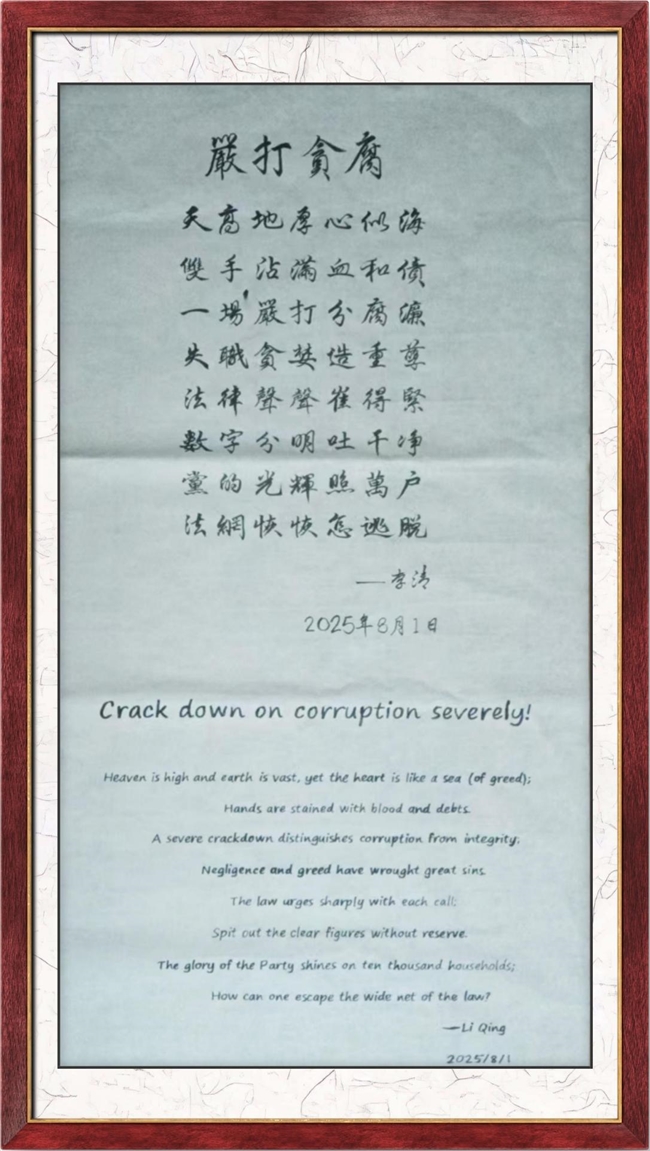 嚴打貪腐
天高地厚心似海
雙手沾滿血和債
一場嚴打分腐濂
失職貪婪造重孽
法律聲聲崔得緊
數字分明吐干净
黨的光輝照萬户
法網恢恢怎逃脱
——李清
2025年8月1日
Crack down on corruption severely!
Heaven is high and earth is vast, yet the heart is like a sea (of greed);
Hands are stained with blood and debts.
A severe crackdown distinguishes corruption from integrity;
Negligence and greed have wrought great sins.
The law urges sharply with each call;
Spit out the clear figures without reserve.
The glory of the Party shines on ten thousand households;
How can one escape the wide net of the law?
—Li Qing
2025/8/1